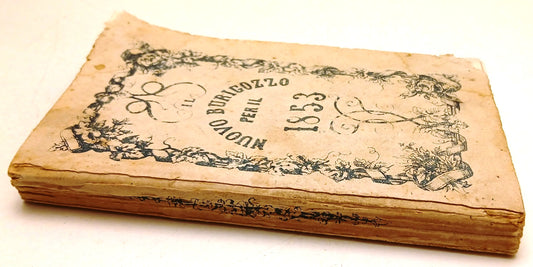 IL
NUOVO BURIGOZZO
PER IL
1853